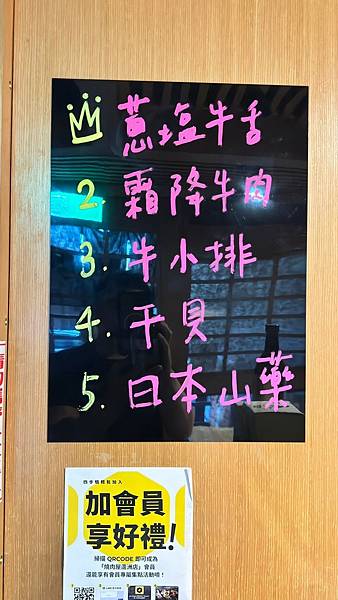 蔥塩牛舌
2. 霜降牛肉
3. 牛小排
4. 干貝
5. 日本山藥
四步驟輕鬆加入
加會員
享好禮!
掃描 QRCODE 即可成為
「燒肉屋蘆洲店」會員
還能享有會員專屬集點活動唷!